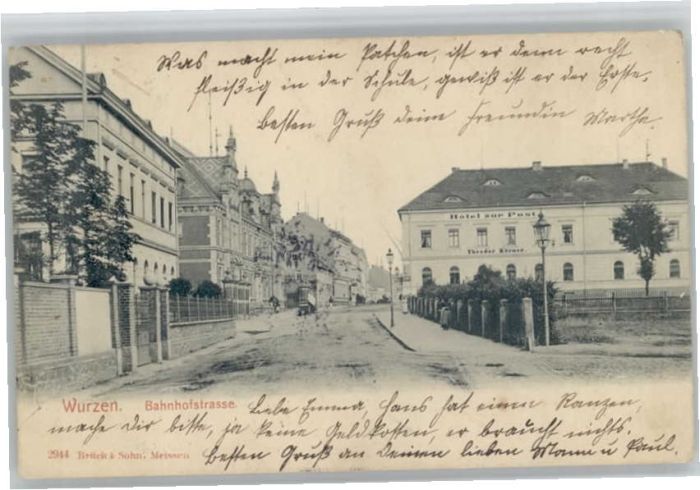 Was macht mein Patchen, ist er denn recht
fleißig in der Schule, gewiß ist er der Erste.
Besten Gruß deine Freundin Marthe.
Hotel zur Post
Theodor Körner
Wurzen. Bahnhofstrasse.
Liebe Emma, Hans hat einen Ranzen,
mache Dir bitte, ja keine Geldkosten, er braucht nichts.
Besten Gruß an Deinen lieben Mann u Paul.
2944 Brück & Sohn, Meissen